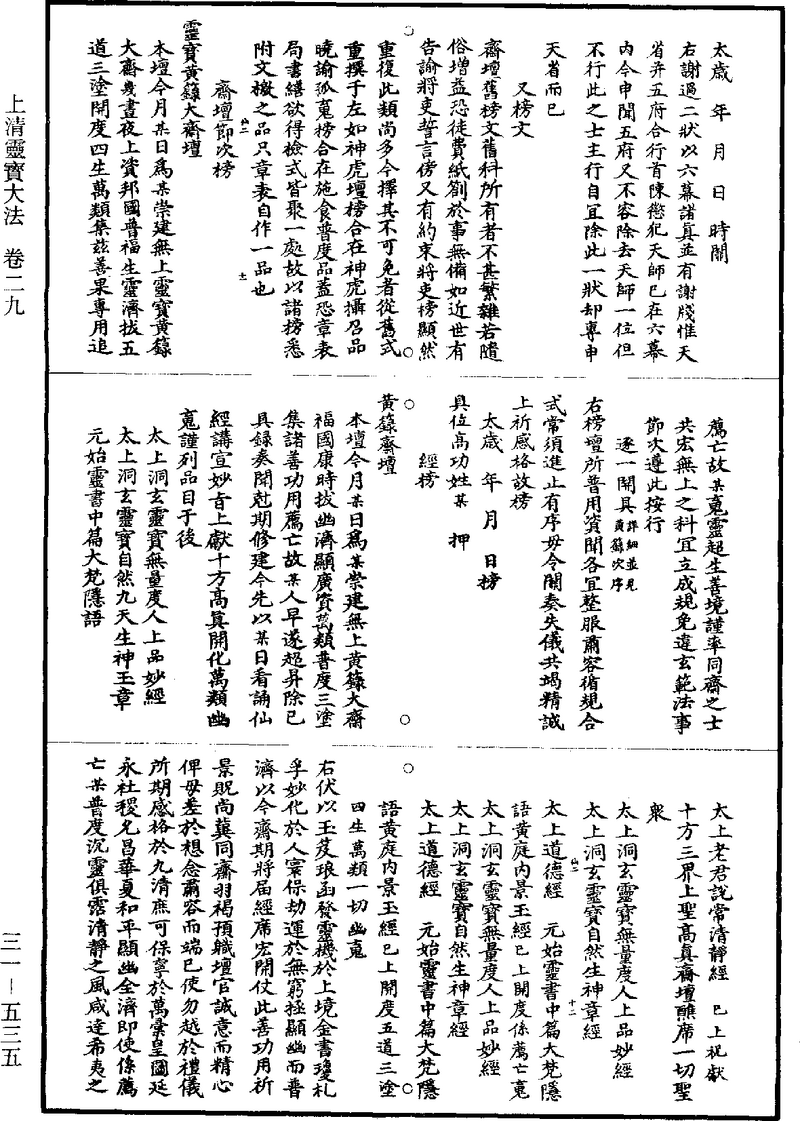 上清靈寶大法　卷二九
三一－五三五
太歲　年　月　日　時關
右謝過二狀以六幕諸真並有謝牋惟天
省并五府合行首陳愆犯天師已在六幕
內今申聞五府又不容除去天師一位但
不行此之士主行自宜除此一狀却專申
天省而已
又榜文
齋壇舊榜文舊科所有者不甚繁雜若隨
俗增益恐徒費紙劄於事無備如近世有
告諭將吏誓言傍又有約束將吏榜顯然
重復此類尚多今擇其不可免者從舊式
重撰于左如神虎壇榜合在神虎攝召品
曉諭孤䰟榜合在施食普度品蓋恐章表
局書繕欲得檢式皆聚一處故以諸榜悉
附文檄之品只章表自作一品也
齋壇節次榜
靈寶黃籙大齋壇
本壇今月某日為某崇建無上靈寶黃籙
大齋幾晝夜上資邦國普福生靈濟拔五
道三塗開度四生萬類集茲善果專用追
薦亡故某䰟靈超生善境謹率同齋之士
共宏無上之科宜立成規免違玄範法事
節次遵此按行
逐一開具詳細並見黃籙次序
右榜壇所普用資聞各宜整服肅容循規合
式常須進止有序毋令關奏失儀共竭精誠
上祈感格故榜
太歲　年　月　日榜
具位高功姓某　押
經榜
黃籙齋壇
本壇今月某日為某崇建無上黃籙大齋
福國康時拔幽濟顯廣資萬類普度三塗
集諸善功用薦亡故某人早遂超昇除已
具錄奏聞尅期修建今先以某日看誦仙
經講宣妙旨上獻十方高真開化萬類幽
䰟謹列品目于後
太上洞玄靈寶無量度人上品妙經
太上洞玄靈寶自然九天生神玉章
元始靈書中篇大梵隱語
太上老君說常清靜經　已上祝獻
十方三界上聖高真齋壇醮席一切聖
衆
太上洞玄靈寶無量度人上品妙經
太上洞玄靈寶自然生神章經
太上道德經　元始靈書中篇大梵隱
語黃庭內景玉經已上開度係薦亡䰟
太上洞玄靈寶無量度人上品妙經
太上洞玄靈寶自然生神章經
太上道德經　元始靈書中篇大梵隱
語黃庭內景玉經已上開度五道三塗
四生萬類一切幽䰟
右伏以玉芨琅函發靈機於上境金書瓊札
孚妙化於人寰保劫運於無窮拯顯幽而普
濟以今齋期將屆經席宏開仗此善功用祈
景貺尚冀同齋羽褐預職壇官誠意而精心
俾毋差於想念肅容而端已使勿越於禮儀
所期感格於九清庶可保寧於萬彙皇圖延
永社稷允昌華夏和平顯幽全濟即使係薦
亡某普度沉靈俱霑清靜之風咸達希夷之